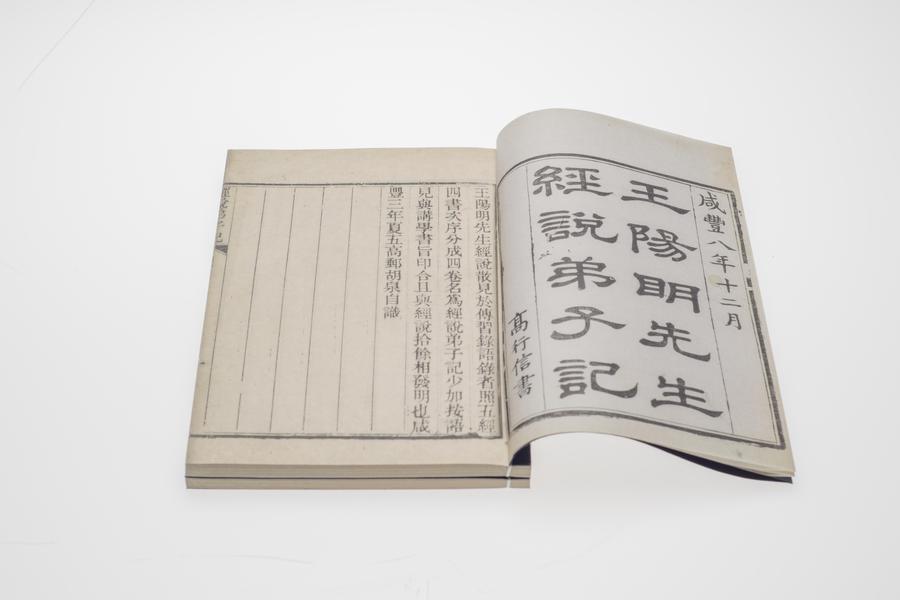 咸豐八年十二月
王陽明先生
經說弟子記
高行信書
王陽明先生經說散見於傳習錄語錄者照五經
四書次序分成四卷名爲經說弟子記少加按語
見與講學書旨印合且與經說拾餘相發明也咸
豐三年夏五高郵胡泉自識
經說弟子記